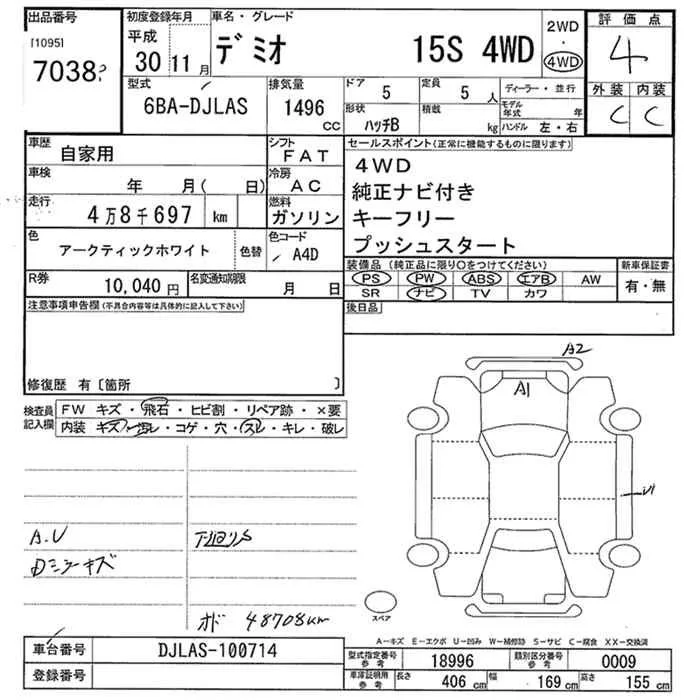 出品番号 初度登録年月 車名・グレード 2WD 評価点
[1095] 平成 デミオ 15S 4WD ・ 4
7038 30 11月 4WD
型式 排気量 ドア 定員 ディーラー・並行 外装 内装
6BA-DJLAS 1496 CC 5 5人 モデル年式 年 C C
形状 積載
ハッチB kg ハンドル 左・右
車歴 自家用 シフト FAT セールスポイント(正常に機能するものに限ります)
車検 年 月( 日) 冷房 AC 4WD
走行 4万8千697 km 燃料 ガソリン 純正ナビ付き
キーフリー
色 アークティックホワイト 色替 色コード A4D プッシュスタート
R券 10,040円 名変通知期限 月 日 装備品(純正品に限り○をつけてください) 新車保証書
PS PW ABS エアB AW 有・無
SR ナビ TV カワ
注意事項申告欄(不具合内容等は具体的に記入して下さい) 後日品
修復歴 有〔箇所 〕
A2
A1
検査員 FW キズ・飛石・ヒビ割・リペア跡・×要
記入欄 内装 キズ・汚レ・コゲ・穴・スレ・キレ・破レ
U1
A.U 下回りS
Dミラーキズ
オド 48708km
スペア
A-キズ E-エクボ U-凹み W-補修跡 S-サビ C-腐食 XX-交換済
車台番号 DJLAS-100714 型式指定番号 参考 18996 類別区分番号 参考 0009
登録番号 車庫証明用 参考 長さ 406 cm 幅 169 cm 高さ 155 cm